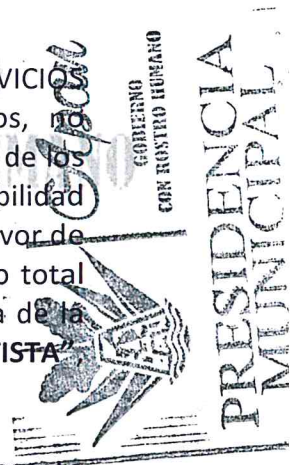 VICIOS
os, no
de los
bilidad
vor de
o total
a de la
TISTA",
Ayala
GOBIERNO
CON ROSTRO HUMANO
PRESIDENCIA
MUNICIPAL